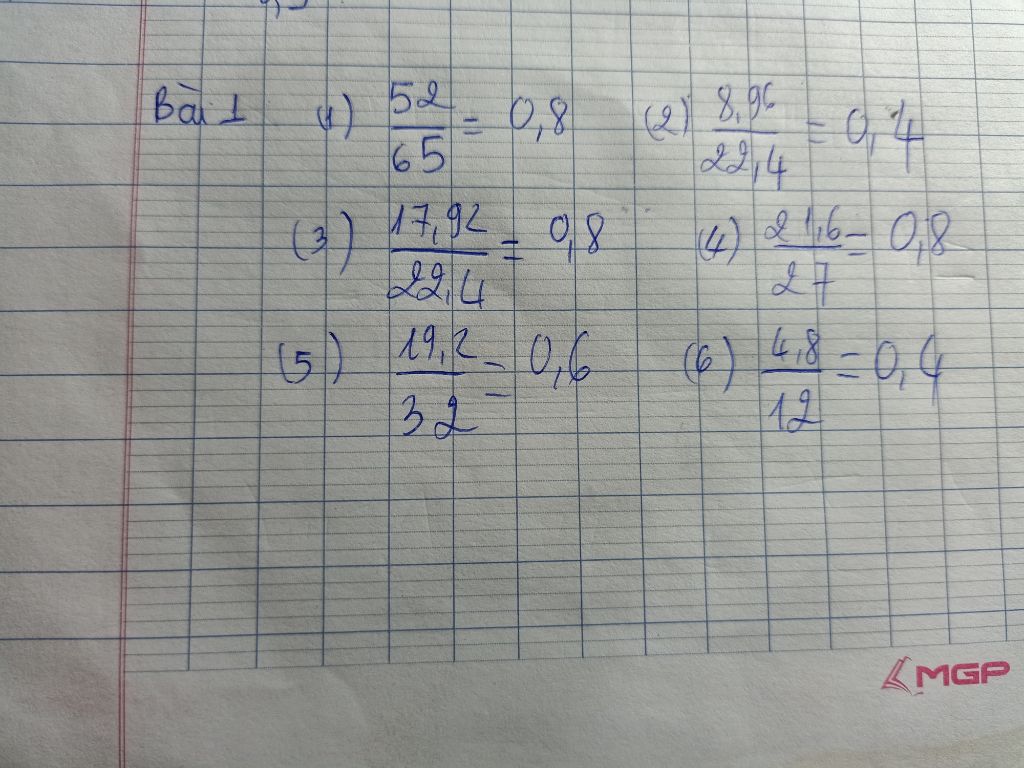 Bài 1 (1) 52/65 = 0,8 (2) 8,96/22,4 = 0,4
(3) 17,92/22,4 = 0,8 (4) 21,6/27 = 0,8
(5) 19,2/32 = 0,6 (6) 4,8/12 = 0,4
MGP